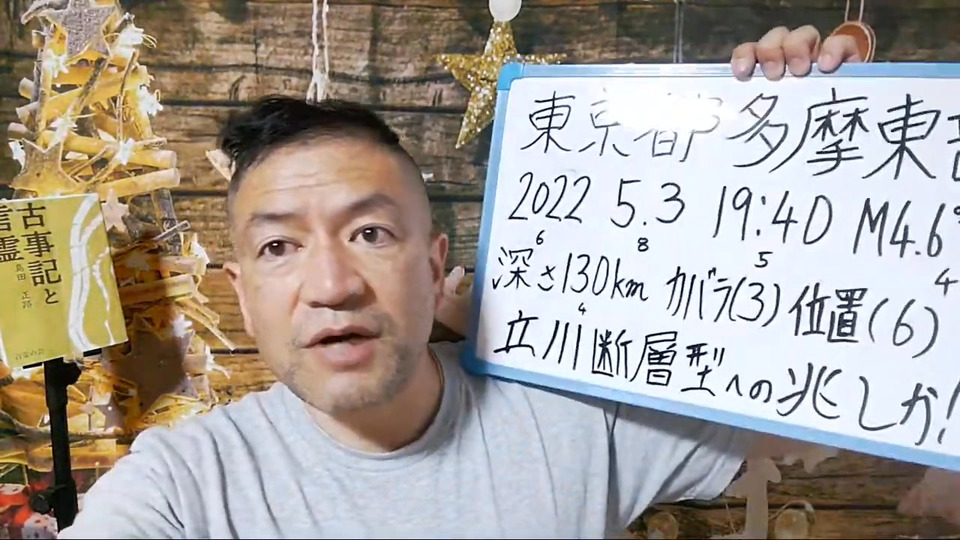 東京都多摩東
2022 5.3 19:40 M4.6
6
8
5
4
深さ130km カバラ(3) 位置(6)
4
立川断層型への兆しか!
古事記と
言霊
島田 正路